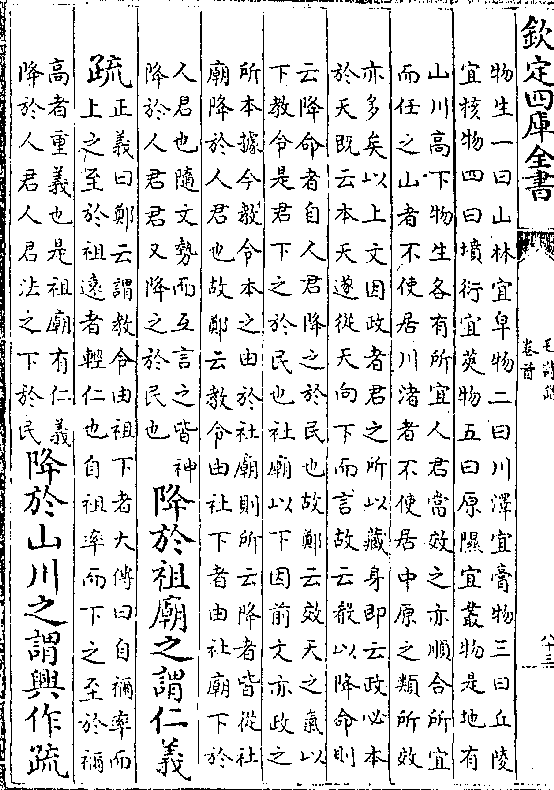 欽定四庫全書
卷首
物生一曰山林宜皁物二曰川澤宜膏物三曰丘陵
宜核物四曰墳衍宜莢物五曰原隰宜叢物是地有
山川高下物生各有所宜人君當效之亦順合所宜
而任之山者不使居川渚者不使居中原之類所效
亦多矣以上文因政者君之所以藏身即云政必本
於天既云本天遂從天向下而言故云殽以降命則
云降命者自人君降之於民也故鄭云效天之氣以
下教令是君下之於民也社廟以下因前文亦政之
所本據今教令本之由於社廟則所云降者皆從社
廟降於人君也故鄭云教令由社下者由社廟下於
人君也隨文勢而互言之皆神
降於人君君又降之於民也
降於祖廟之謂仁義
疏
正義曰鄭云謂教令由祖下者大傳曰自禰率而
上之至於祖遠者輕仁也自祖率而下之至於禰
高者重義也是祖廟有仁義
降於人君人君法之下於民
降於山川之謂興作疏